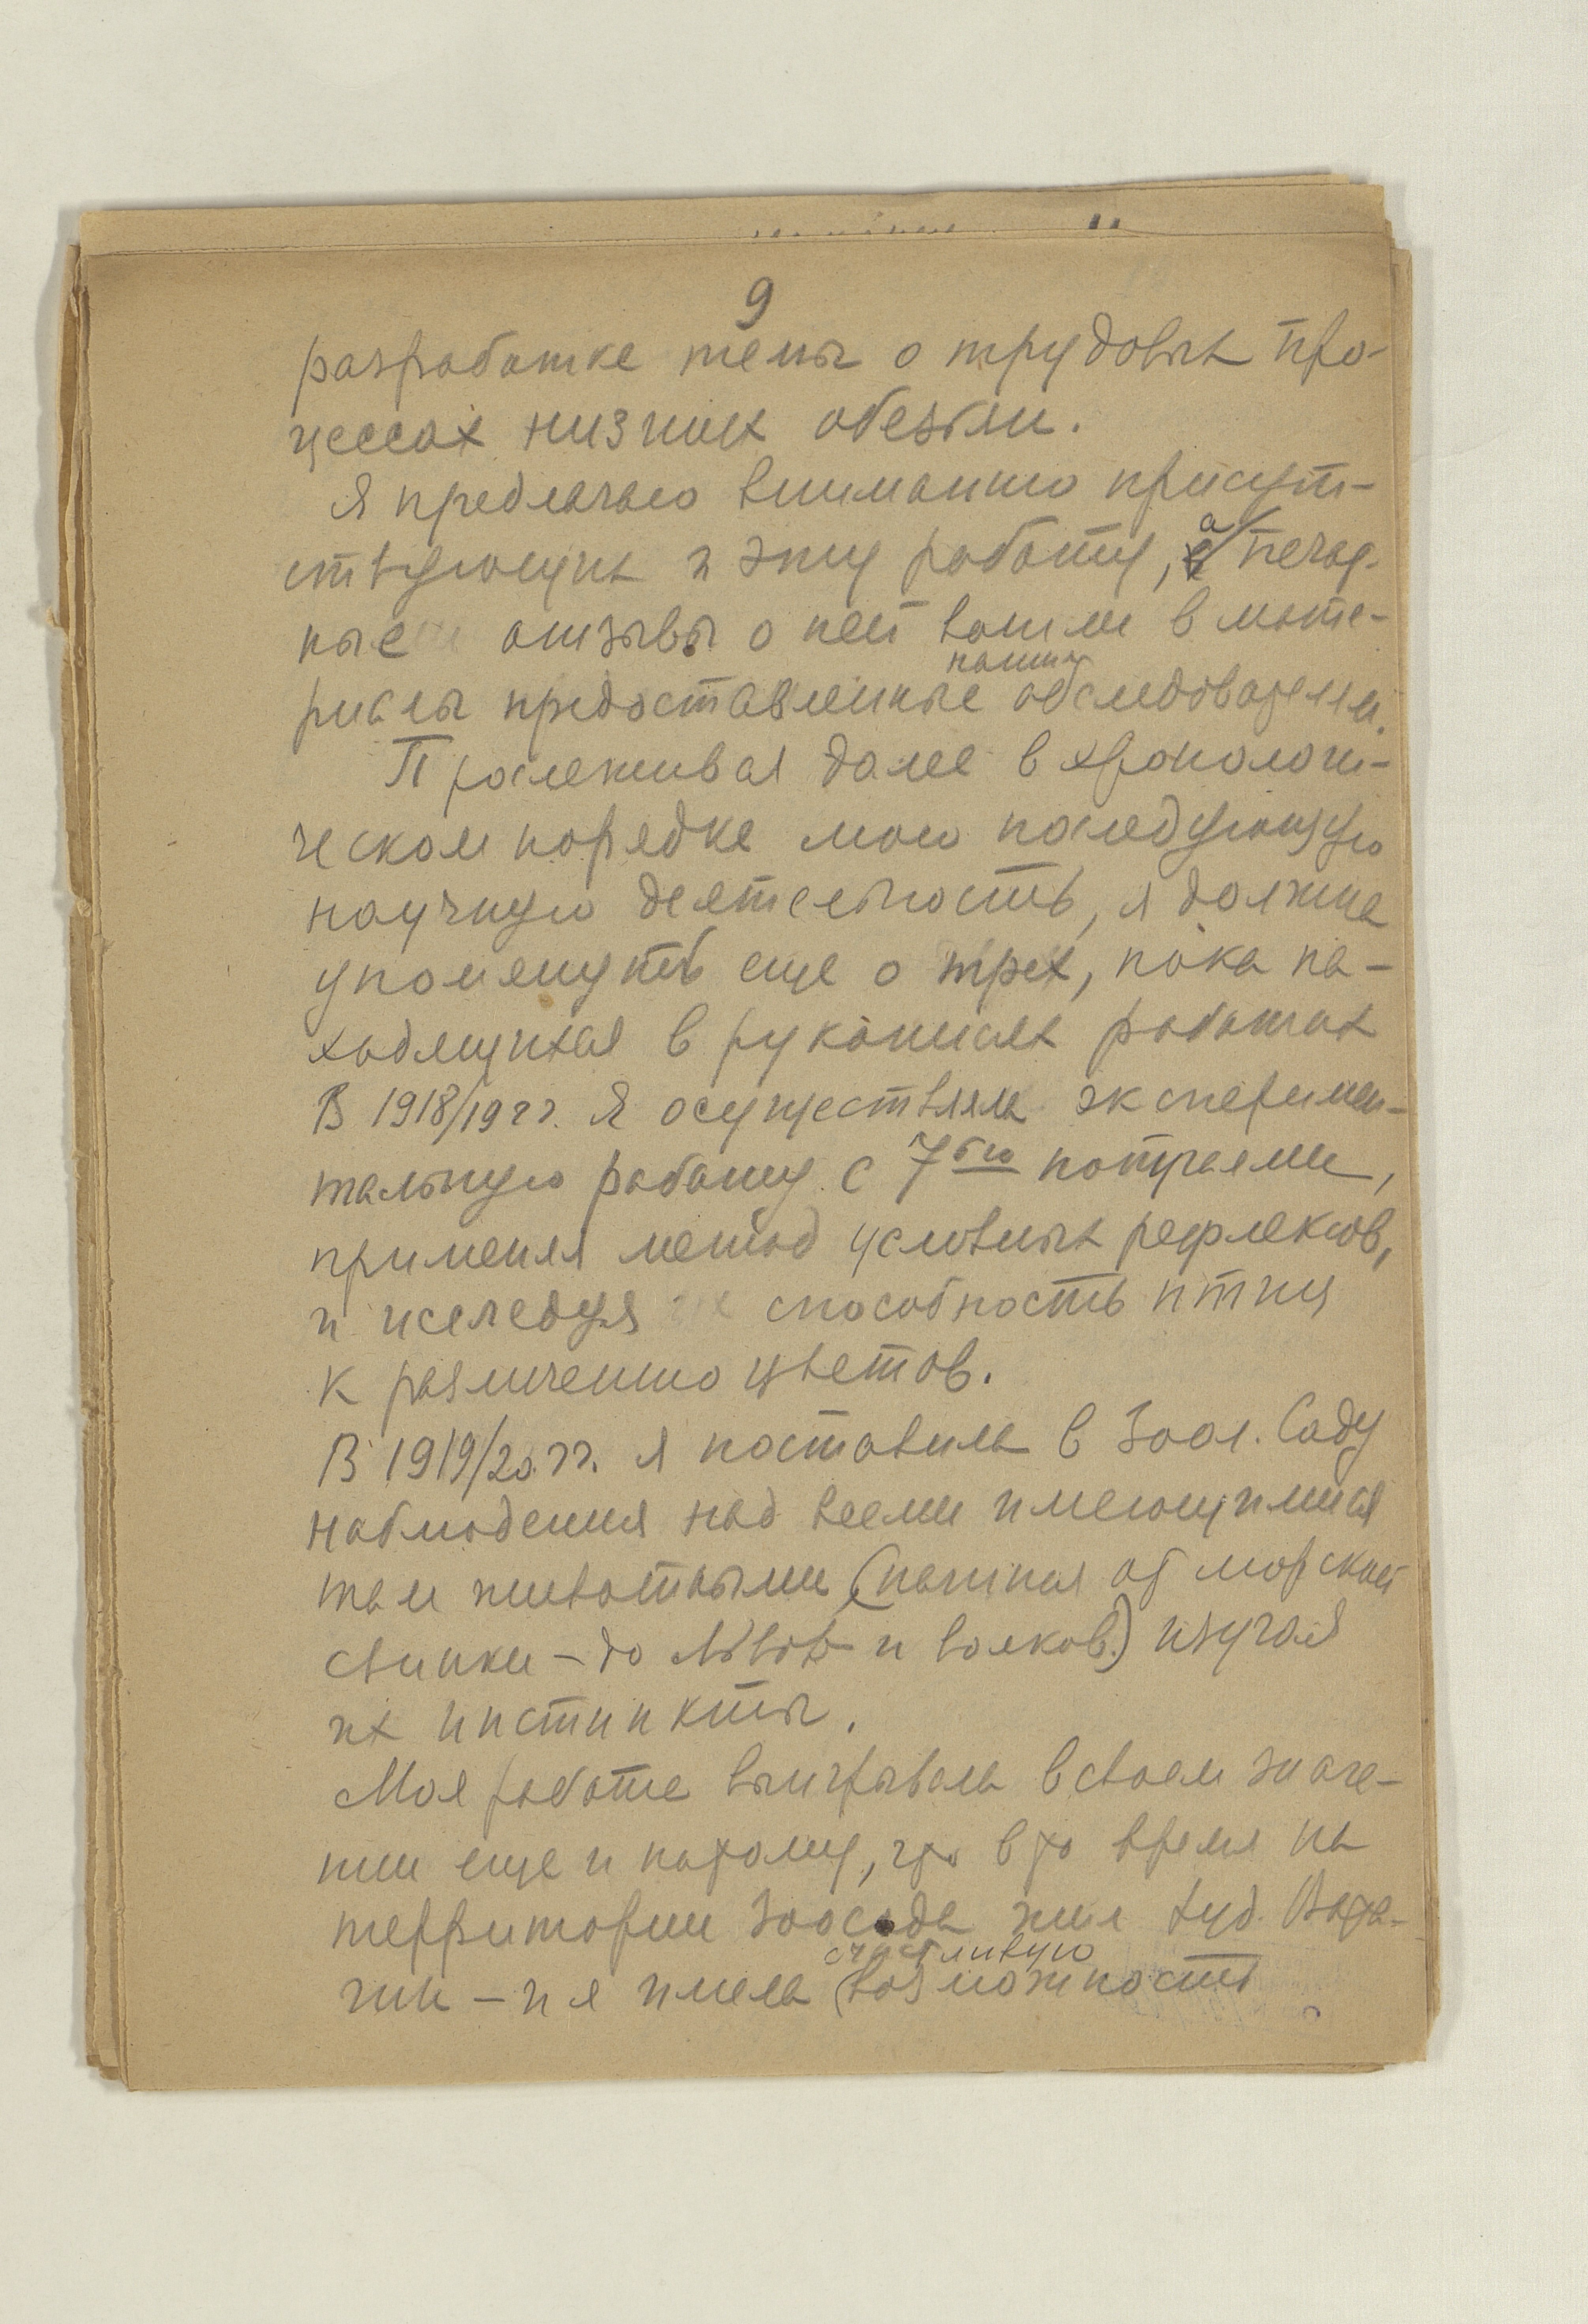 9
разработке темы о трудовых про-
цессах низших обезьян.
Я предлагаю вниманию присут-
ствующих и эту работу, а печат-
ные отзывы о ней вошли в мате-
нашим
риалы предоставленные обследователям.
Прослеживая далее в хронологи-
ческом порядке мою последующую
научную деятельность, я должна
упомянуть еще о трех, пока на-
ходящихся в рукописях работах
В 1918/19 гг. Я осуществляла эксперимен-
тальную работу с 7ью попугаями,
применяя метод условных рефлексов,
и иследуя способность птиц
к различению цветов.
В 1919/20 гг. я поставила в Зоол. Саду
наблюдения над всеми имеющимися
там животными (начиная от морской
свинки – до львов и волков.) изучая
их инстинкты.
Моя работа выигрывала в своем значе-
нии еще и потому, что в то время на
территории Зоосада жил худ. Вата-
счастливую
гин – и я имела возможность